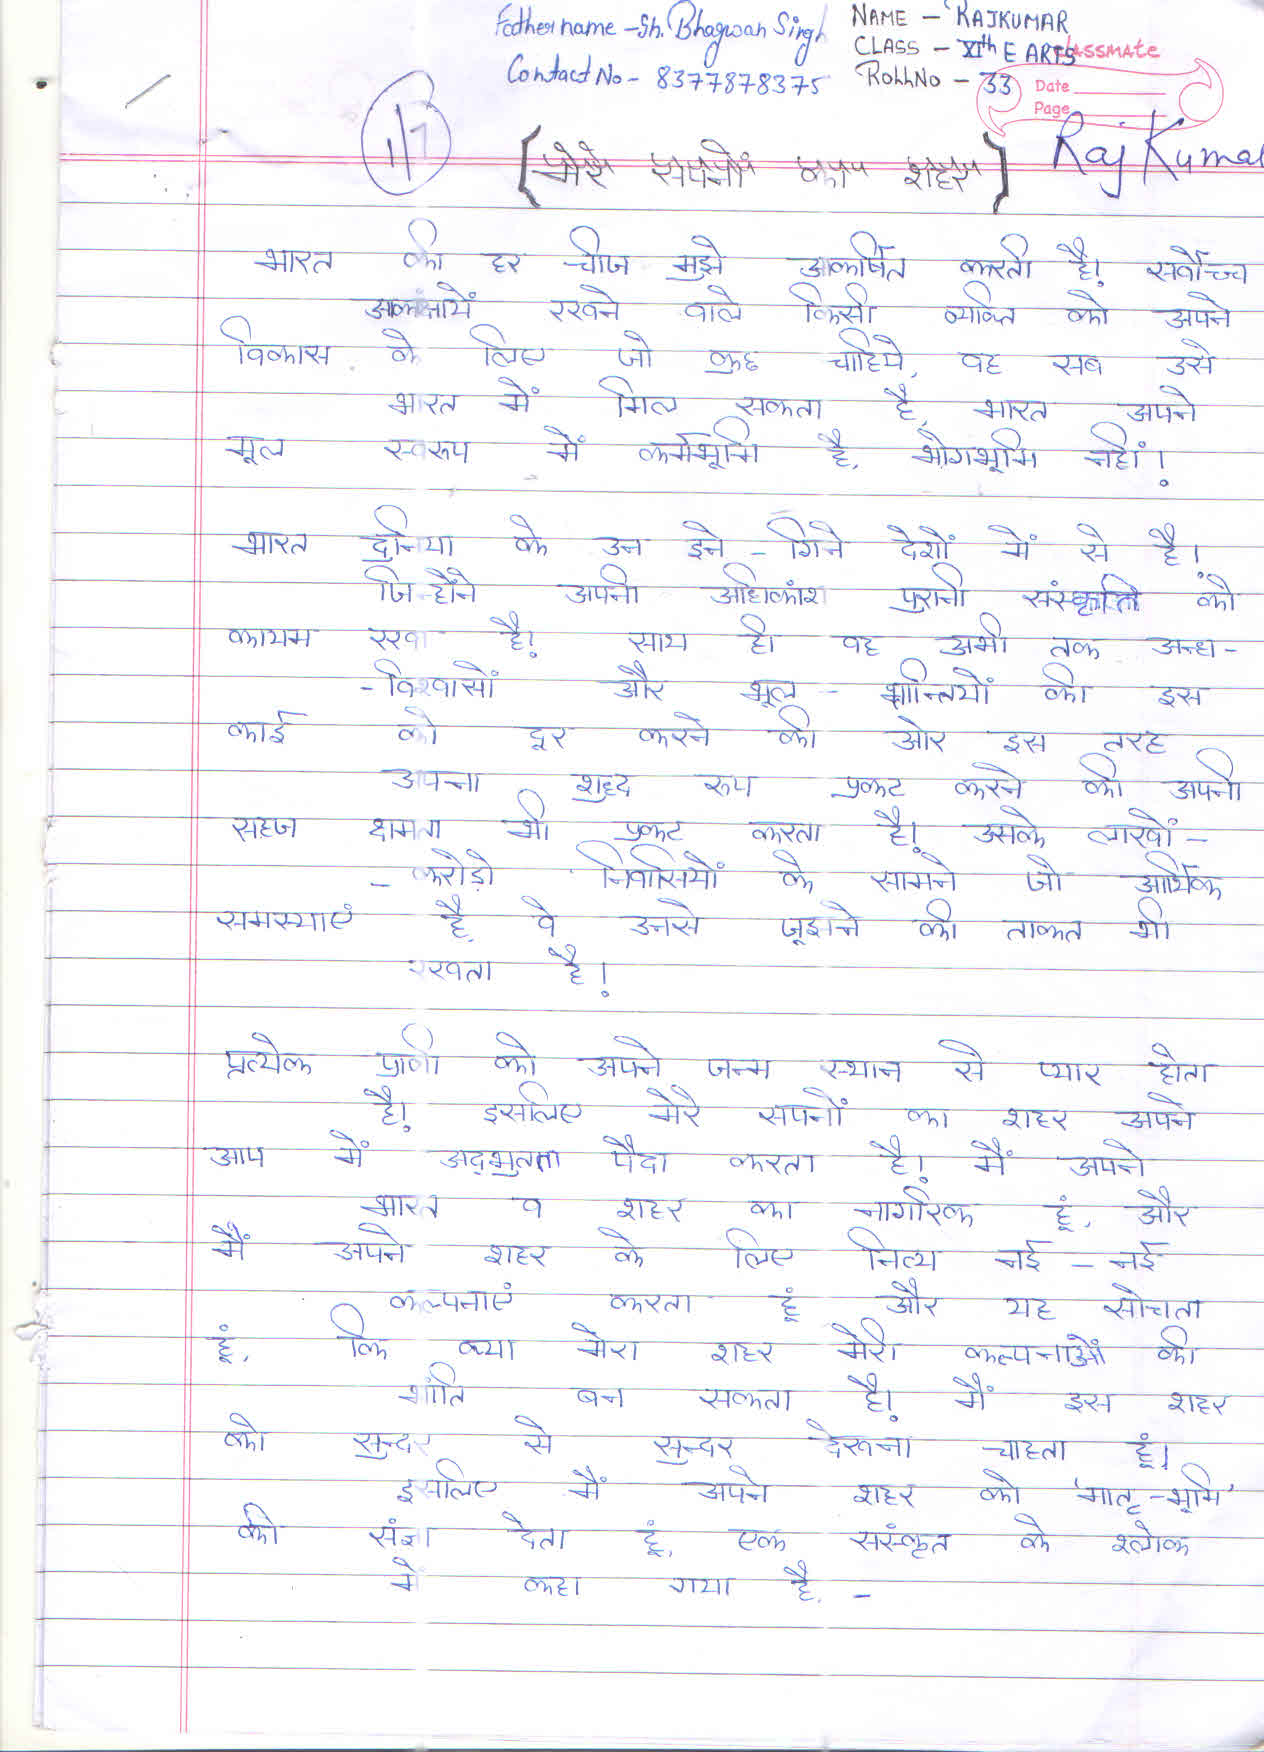 Father name - Sh. Bhagwan Singh
NAME - RAJKUMAR
CLASS - XIth E ARTS
classmate
Contact No - 8377878375
Roll No - 33
Date
Page
1/7
Raj Kumar
[मेरे सपनों का शहर]
भारत की हर चीज मुझे आकर्षित करती है! सर्वोच्च
आकांक्षायें रखने वाले किसी व्यक्ति को अपने
विकास के लिए जो कुछ चाहिये, वह सब उसे
भारत में मिल सकता है, भारत अपने
मूल स्वरूप में कर्मभूमि है, भोगभूमि नहीं!
भारत दुनिया के उन इने - गिने देशों में से है।
जिन्होंने अपनी अधिकांश पुरानी संस्कृति को
कायम रखा है! साथ ही वह अभी तक अन्ध-
- विश्वासों और भूल - भ्रान्तियों की इस
काई को दूर करने की ओर इस तरह
अपना शुद्द रूप प्रकट करने की अपनी
सहज क्षमता भी प्रकट करता है! उसके लाखों -
- करोड़ो निवासियों के सामने जो आर्थिक
समस्याएं है, वे उनसे जूझने की ताकत भी
रखता है!
प्रत्येक प्राणी को अपने जन्म स्थान से प्यार होता
है! इसलिए मेरे सपनों का शहर अपने
आप में अद्भुतता पैदा करता है! मैं अपने
भारत व शहर का नागरिक हूं, और
मैं अपने शहर के लिए नित्य नई - नई
कल्पनाएं करता हूं और यह सोचता
हूं, कि क्या मेरा शहर मेरी कल्पनाओं की
भांति बन सकता है! मैं इस शहर
को सुन्दर से सुन्दर देखना चाहता हूं।
इसलिए मैं अपने शहर को 'मातृ-भूमि'
की संज्ञा देता हूं, एक संस्कृत के श्लोक
में कहा गया है, -